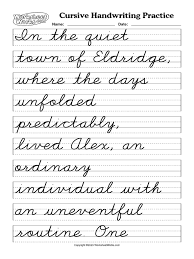 Cursive Handwriting Practice
Name: Date:
In the quiet
town of Eldridge,
where the days
unfolded
predictably,
lived Alex, an
ordinary
individual with
an uneventful
routine One